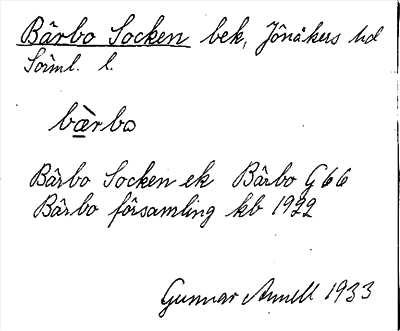 Bärbo Socken bek, Jönåkers hd
Sörml. l.
bæ̀rbo
Bärbo Socken ek Bärbo G66
Bärbo församling kb 1922
Gunnar Annell 1933